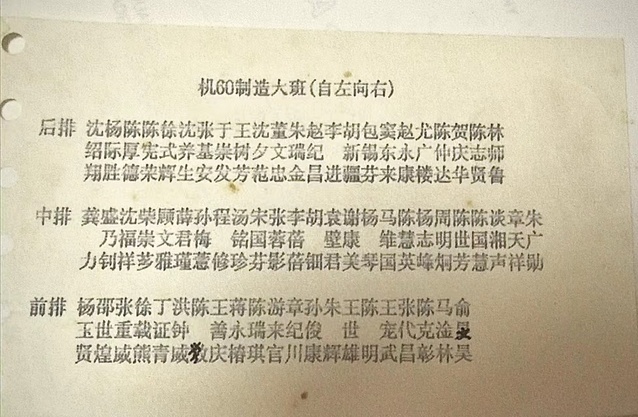 机60制造大班(自左向右)
后排 沈杨陈陈徐沈张于王沈董朱赵李胡包窦赵尤陈贺陈林
绍际厚宪式养基崇树夕文瑞纪 新锡东永广仲庆志师
翔胜德荣辉生安发芳范忠金昌进疆芬来康楼达华贤鲁
中排 龚盛沈柴顾薛孙程汤宋张李胡袁谢杨马陈杨周陈陈谈章朱
乃福崇文君梅 铭国蓉蓓 壁康 维慧明志国世国湘天广
力钊祥芗雅瑾蕙修珍芬影蓓钿君美琴国英峰炯芳慧声祥勋
前排 杨邵张徐丁洪陈王蒋陈游章孙朱王陈王张陈马俞
玉世重载证钟 善永瑞来纪俊 世 宠代克淦
贤煌威熊青威 庆椿琪官川康辉雄明武昌彰林昊